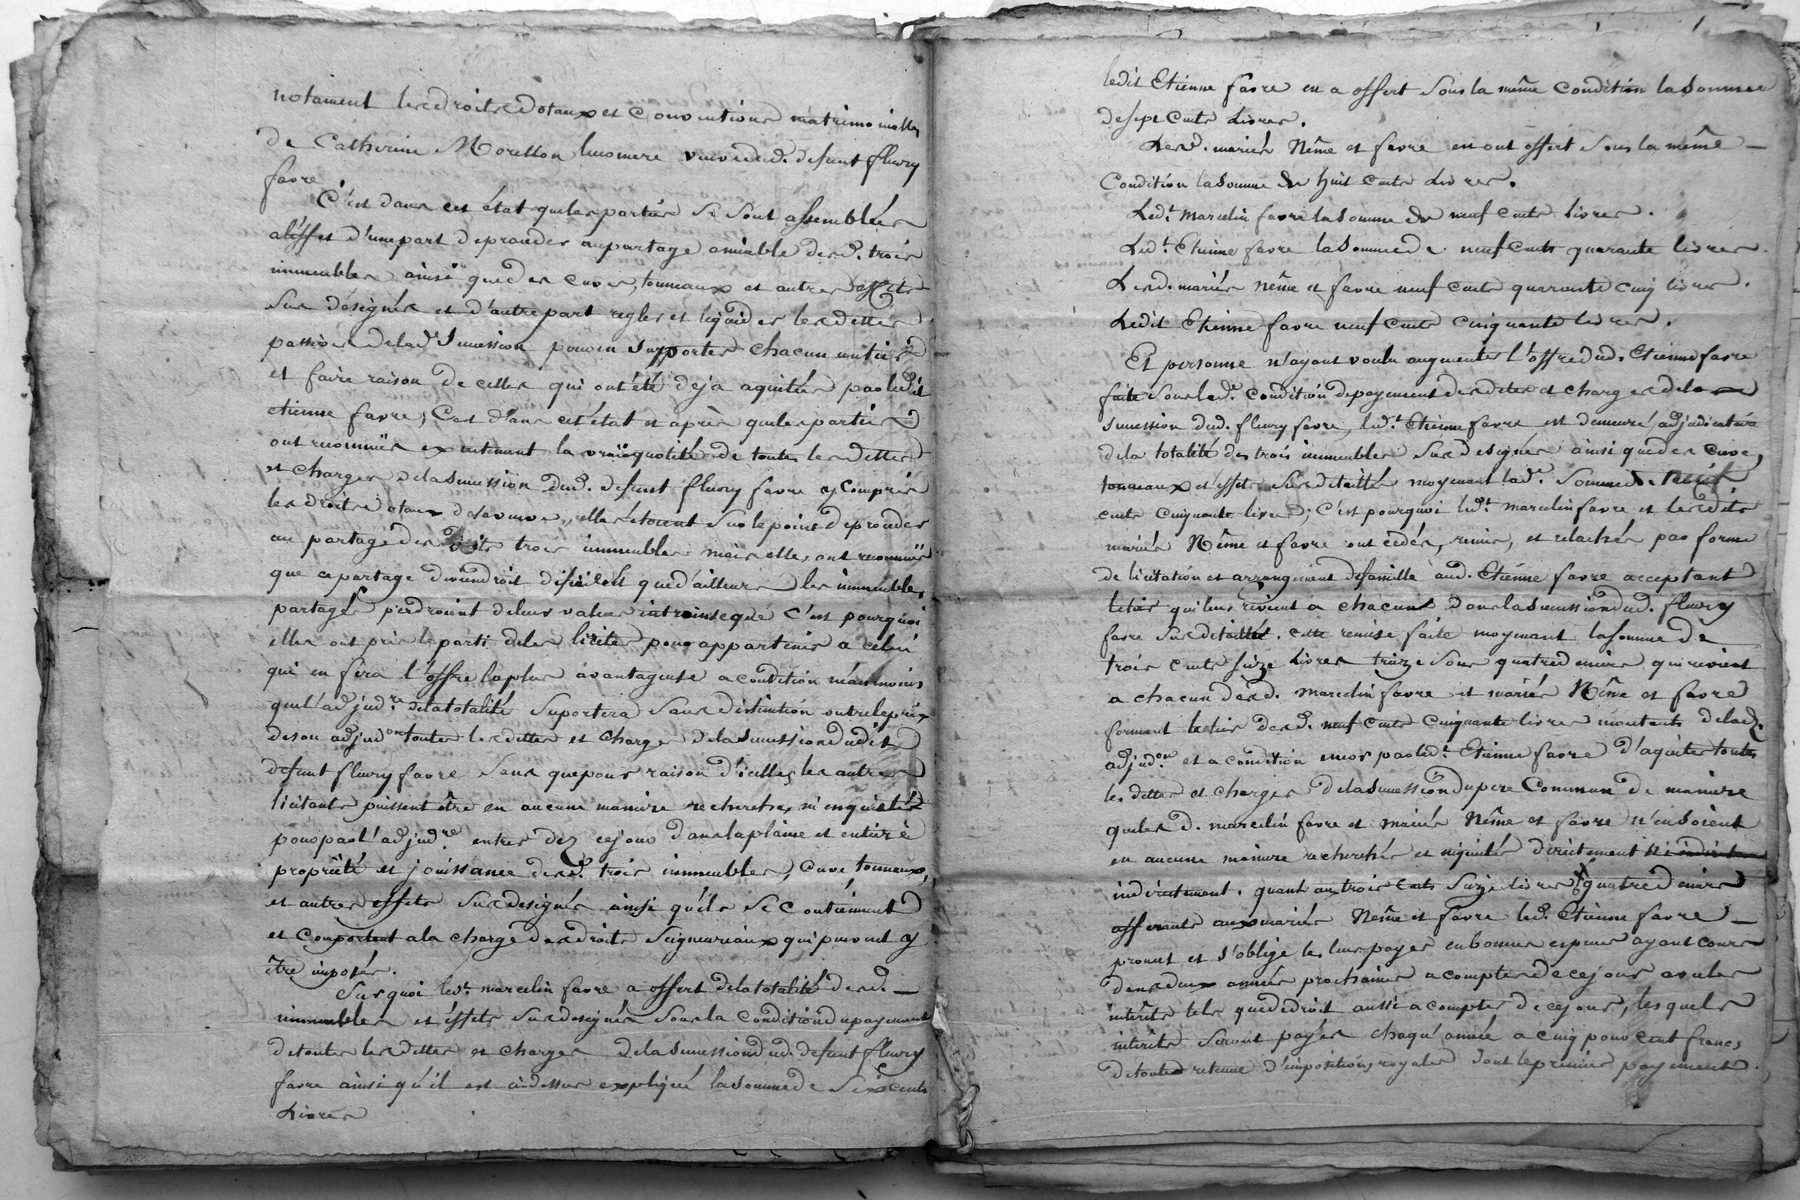 notament les droits dotaux et Conventions matrimonialles
de Catherine Morellon leur mere veuve dud. defunt fleury
favre
C'est dans cet état que les parties se sont assemblées
a l'effet d'une part de proceder au partage amiable desd. trois
immeubles ainsi que des cuves, tonneaux et autres effets
sus désignés et d'autre part regler et liquider les dettes
passives de lad. Succession pour en supporter chacun un tiers
et faire raison de celles qui ont été deja aquitées par ledit
etienne favre; C'est dans cet état et après que les parties
ont reconnües exactement la vraie quotité de toutes les dettes
et charges de la succession dud. defunt fleury favre y compris
les droits dotaux de sa veuve, elles étoient sur le point de proceder
au partage des dits trois immeubles mais elles ont reconnües
que ce partage deviendroit dificile et que d'ailleurs les immeubles
partagés perdroient de leur valeur intrinseque c'est pourquoi
elles ont pris le parti de les liciter pour appartenir a celui
qui en fera l'offre la plus avantageuse a condition néanmoins
que l'adjud.re de la totalité suportera sans distinction outre le prix
de son adjud.on toutes les dettes et charges de la succession dudit
defunt fleury favre sans que pour raison d'icelles les autres
licitants puissent être en aucune maniere recherchés ni enquietés
pour par l'adjud.re entrer dez ce jour dans la pleine et entiere
propriété et jouissance desd. trois immeubles, cuve, tonneaux,
et autres effets sus designés ainsi qu'ils se contiennent
et comportent a la charge des droits Seigneuriaux qui peuvent y
être imposés.
Sur quoi led.t marcelin favre a offert de la totalité desd.
immeubles et effets sus designés sous la condition du payement
de toutes les dettes et charges de la succession dud. defunt fleury
favre ainsi qu'il est ci dessus expliqué la somme de Six cents
Livres
ledit Etienne favre en a offert sous la même condition la somme
de sept cents Livres.
Lesd. mariés Nême et favre en ont offert sous la même
Condition la somme de huit cents Livres.
Led.t marcelin favre la somme de neuf cents livres.
Led.t Etienne favre la somme de neuf cents quarante livres
Lesd. mariés Nême et favre neuf cents quarante cinq livres.
Ledit Etienne favre neuf cents cinquante livres.
Et personne n'ayant voulu augmenter l'offre dud. Etienne favre
faite sous lad. condition de payement des dettes et charges de la
succession dud. fleury favre, led.t Etienne favre est demeuré adjudicataire
de la totalité des trois immeubles sus designés ainsi que des cuve,
tonneaux et effets sus detaillés moyenant lad.e Somme de neuf
cents cinquante livres; c'est pourquoi led.t marcelin favre et lesdits
mariés Nême et favre ont cédés, remis, et relachés par forme
de licitation et arrangement de famille aud. Etienne favre acceptant
le tiers qui leur revient a chacuns dans la succession dud. fleury
favre sus detaillé. cette remise faite moyenant la somme de
trois cents Seize Livres treize Sous quatre deniers qui revient
a chacun desd. marcelin favre et mariés Nême et favre
formant le tiers desd. neuf cents cinquante livres montant de lade
adjud.on et a condition encor par led.t Etienne favre d'aquiter toutes
les dettes et charges de la succession du pere Commun de maniere
que lesd. marcelin favre et mariés Nême et favre n'en soient
en aucune maniere recherchés et inquietés directement ni indirecte
indirectement. quant aux trois cents Seize livres quatre deniers
afferants aux mariés Nême et favre led. Etienne favre
promet et s'oblige les leur payer en bonnes especes ayant cours
dans deux années prochaines a compter de ce jour avec les
interêts tels que de droit aussi a compter de ce jour, lesquels
interêts seront payés chaqu'année a cinq pour cent francs
de toute retenue d'impositions royales dont le premier payement